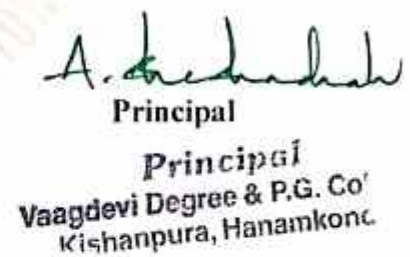 A.
Principal
Principal
Vaagdevi Degree & P.G. Co
Kishanpura, Hanamkon